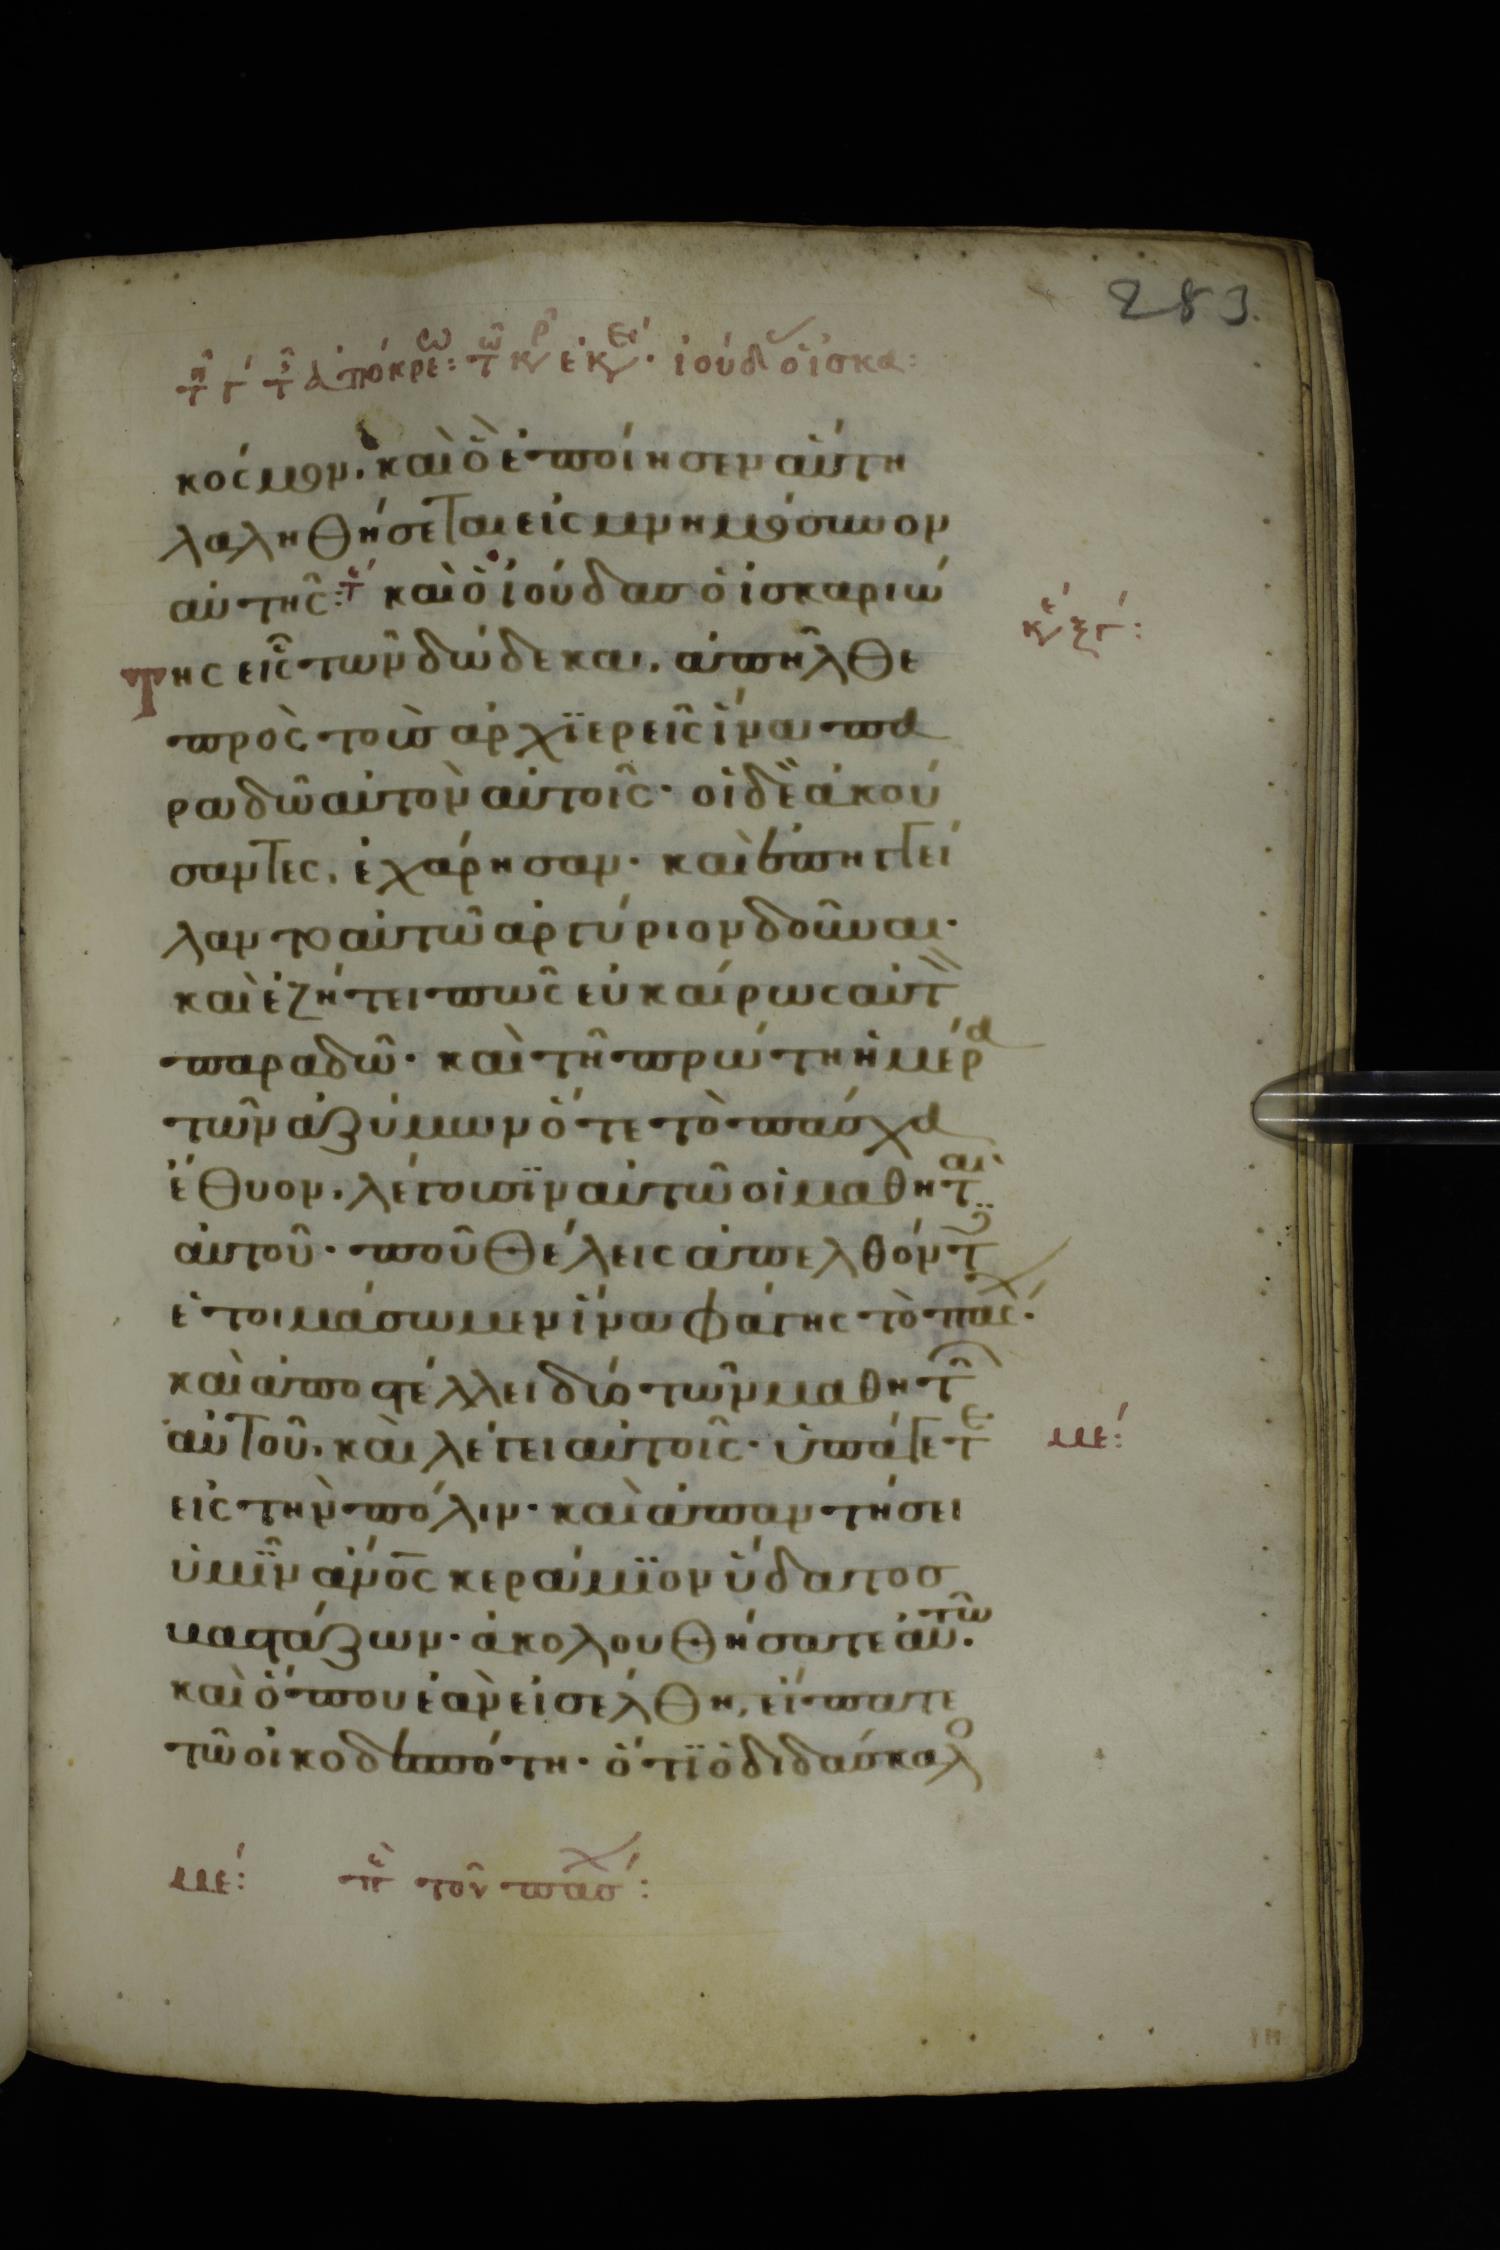 283.
τῇ γ´ τῆς ἀπόκρεω: τῷ καιρῷ ἐκείνῳ· ἰούδας ὁ ἰσκα:
κόσμον. καὶ ὃ ἐποίησεν αὕτη
λαληθήσεται εἰς μνημόσυνον
αὐτῆς: τέ καὶ ὁ ἰούδας ὁ ἰσκαριώ
κε ξγ:
Της εἷς τῶν δώδεκα, ἀπῆλθε
πρὸς τοὺς ἀρχϊερεῖς ἵνα πα
ραδῶ αὐτὸν αὐτοῖς· οἱ δὲ ἀκού
σαντες, ἐχάρησαν· καὶ ἐπηγγεί
λαντο αὐτῶ ἀργύριον δοῦναι·
καὶ ἐζήτει πῶς εὐκαίρως αὐτὸν
παραδῶ· καὶ τῆ πρώτη ἡμέρα
τῶν ἀζύμων ὅτε τὸ πάσχα
ἔθυον, λέγουσϊν αὐτῶ οἱ μαθηταὶ
αὐτοῦ· ποῦ θέλεις ἀπελθόντες
ἑτοιμάσωμεν ἵνα φάγης τὸ πάσχα·
καὶ ἀποστέλλει δύο τῶν μαθητῶν
αὐτοῦ, καὶ λέγει αὐτοῖς· ὑπάγετε
με:
εἰς τὴν πόλιν· καὶ ἀπαντήσει
ὑμῖν ἄνος κεράμϊον ὕδατος
βαστάζων· ἀκολουθήσατε αὐτῶ·
καὶ ὅπου ἐὰν εἰσέλθη, εἴπατε
τῶ οἰκοδεσπότη· ὅτϊ ὁ διδάσκαλο
με: πε τοῦ πάσχ: